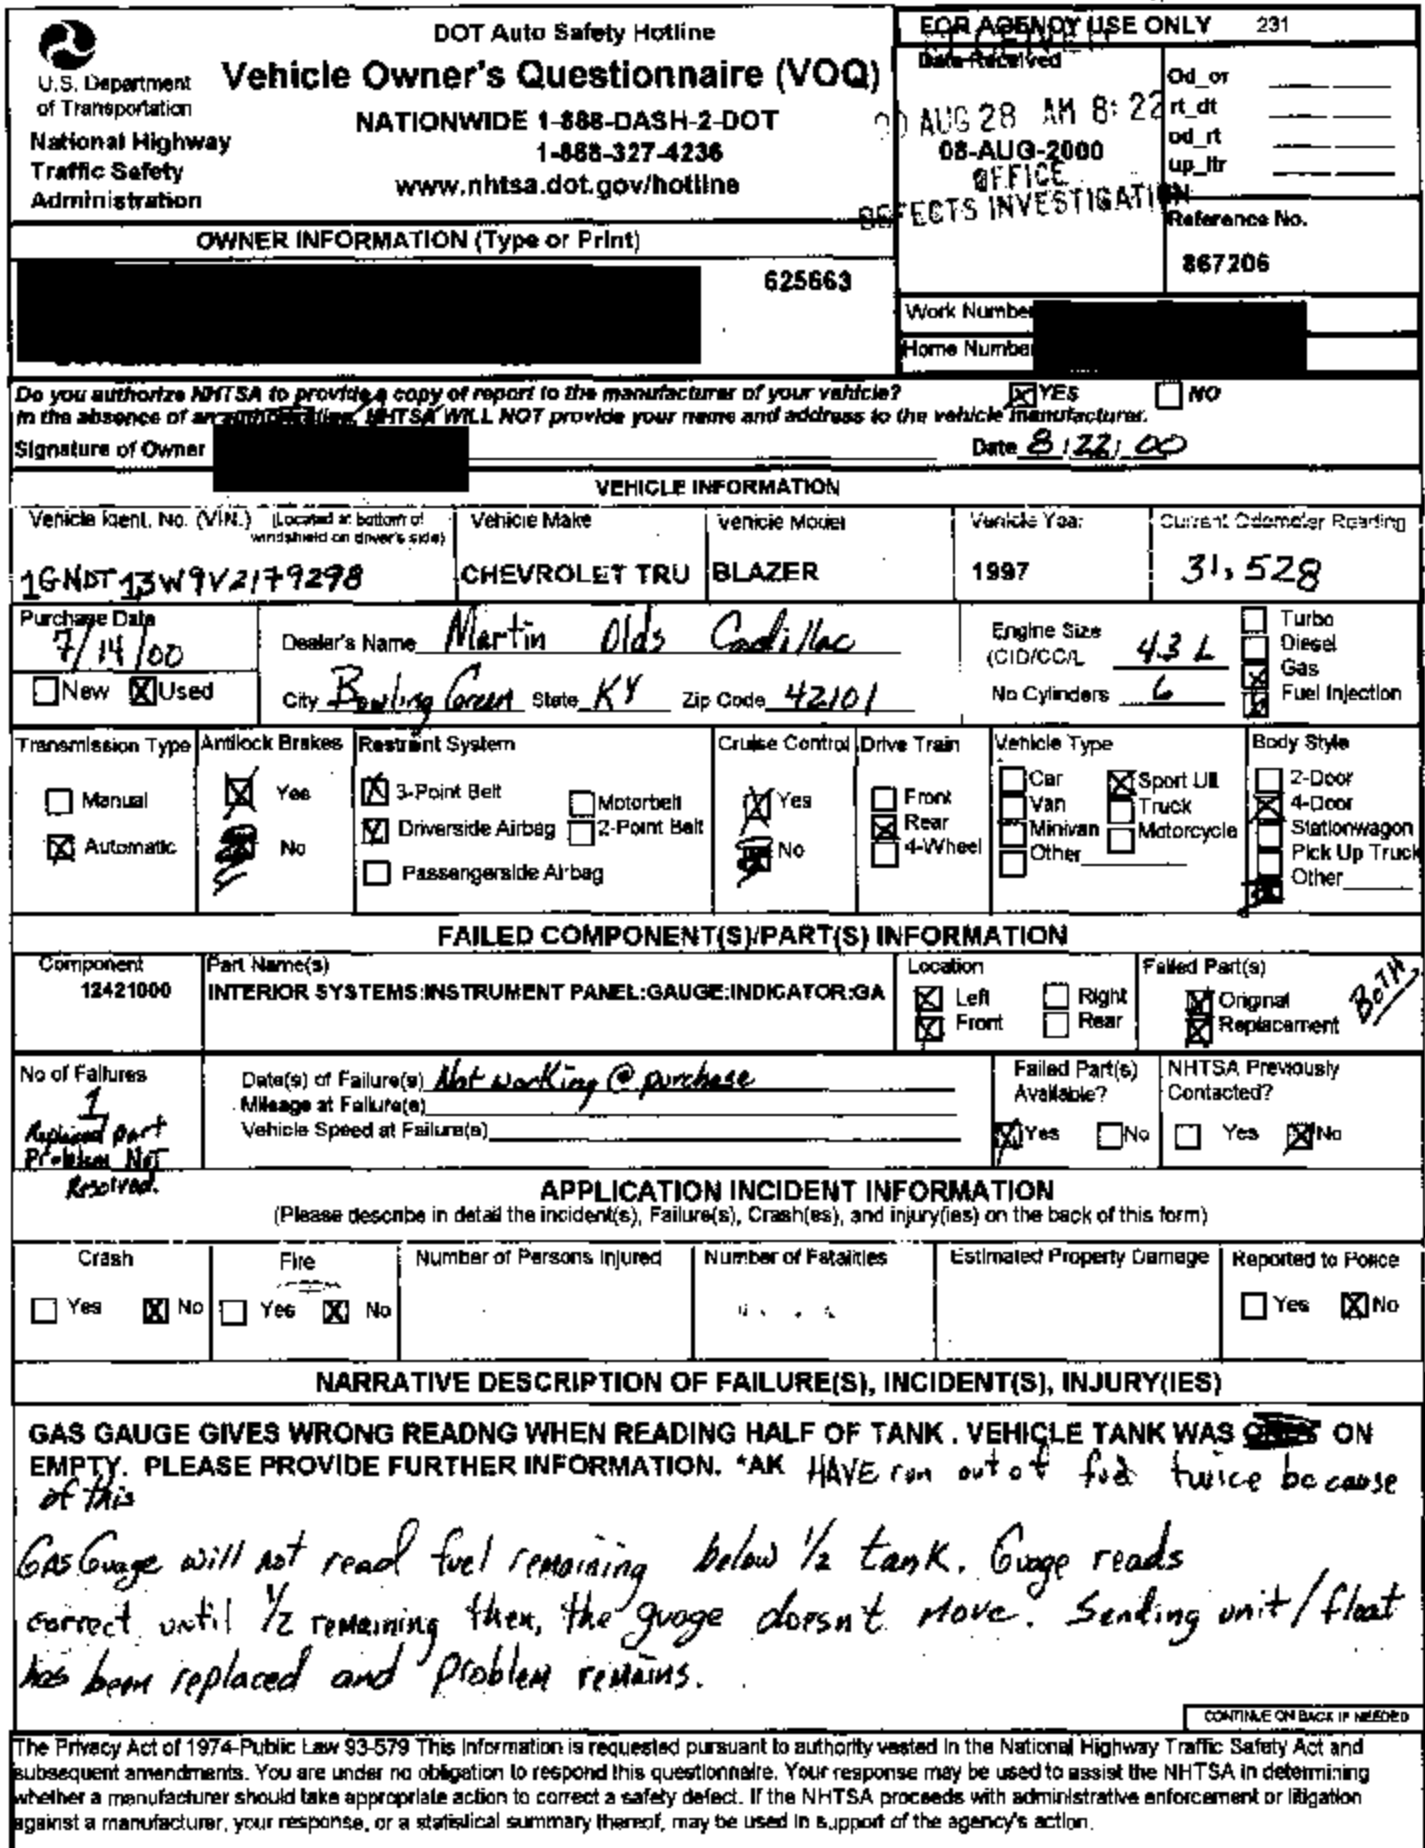 DOT Auto Safety Hotline
Vehicle Owner's Questionnaire (VOQ)
NATIONWIDE 1-888-DASH-2-DOT
1-888-327-4236
www.nhtsa.dot.gov/hotline
U.S. Department
of Transportation
National Highway
Traffic Safety
Administration
FOR AGENCY USE ONLY 231
Date Received
AUG 28 AM 8:22
08-AUG-2000
OFFICE
DEFECTS INVESTIGATION
Od_or
rt_dt
od_rt
up_ltr
Reference No.
867206
OWNER INFORMATION (Type or Print)
625663
Work Number
Home Number
Do you authorize NHTSA to provide a copy of report to the manufacturer of your vehicle? YES NO
In the absence of an authorization, NHTSA WILL NOT provide your name and address to the vehicle manufacturer.
Signature of Owner Date 8/22/00
VEHICLE INFORMATION
Vehicle Ident. No. (VIN.) (Located at bottom of windshield on driver's side)
1GNDT13W9V2179298
Vehicle Make
CHEVROLET TRU
Vehicle Model
BLAZER
Vehicle Year
1997
Current Odometer Reading
31,528
Purchase Date
7/14/00
New Used
Dealer's Name Martin Olds Cadillac
City Bowling Green State KY Zip Code 42101
Engine Size
(CID/CC/L 4.3 L
No Cylinders 6
Turbo
Diesel
Gas
Fuel Injection
Transmission Type
Manual
Automatic
Antilock Brakes
Yes
No
Restraint System
3-Point Belt
Driverside Airbag
Passengerside Airbag
Motorbelt
2-Point Belt
Cruise Control
Yes
No
Drive Train
Front
Rear
4-Wheel
Vehicle Type
Car
Van
Minivan
Other
Sport Util
Truck
Motorcycle
Body Style
2-Door
4-Door
Stationwagon
Pick Up Truck
Other
FAILED COMPONENT(S)/PART(S) INFORMATION
Component
12421000
Part Name(s)
INTERIOR SYSTEMS:INSTRUMENT PANEL:GAUGE:INDICATOR:GA
Location
Left Right
Front Rear
Failed Part(s)
Original
Replacement
BOTH
No of Failures
1
Replaced part
Problem NOT
Resolved.
Date(s) of Failure(s) Not working @ purchase
Mileage at Failure(s)
Vehicle Speed at Failure(s)
Failed Part(s)
Available?
Yes No
NHTSA Previously
Contacted?
Yes No
APPLICATION INCIDENT INFORMATION
(Please describe in detail the incident(s), Failure(s), Crash(es), and injury(ies) on the back of this form)
Crash
Yes No
Fire
Yes No
Number of Persons Injured
Number of Fatalities
Estimated Property Damage
Reported to Police
Yes No
NARRATIVE DESCRIPTION OF FAILURE(S), INCIDENT(S), INJURY(IES)
GAS GAUGE GIVES WRONG READNG WHEN READING HALF OF TANK . VEHICLE TANK WAS ON
EMPTY. PLEASE PROVIDE FURTHER INFORMATION. *AK HAVE run out of fuel twice because
of this
GAS Guage will not read fuel remaining below 1/2 tank. Guage reads
correct until 1/2 remaining then, the guage doesn't move. Sending unit/float
has been replaced and problem remains.
CONTINUE ON BACK IF NEEDED
The Privacy Act of 1974-Public Law 93-579 This information is requested pursuant to authority vested in the National Highway Traffic Safety Act and
subsequent amendments. You are under no obligation to respond this questionnaire. Your response may be used to assist the NHTSA in determining
whether a manufacturer should take appropriate action to correct a safety defect. If the NHTSA proceeds with administrative enforcement or litigation
against a manufacturer, your response, or a statistical summary thereof, may be used in support of the agency's action.